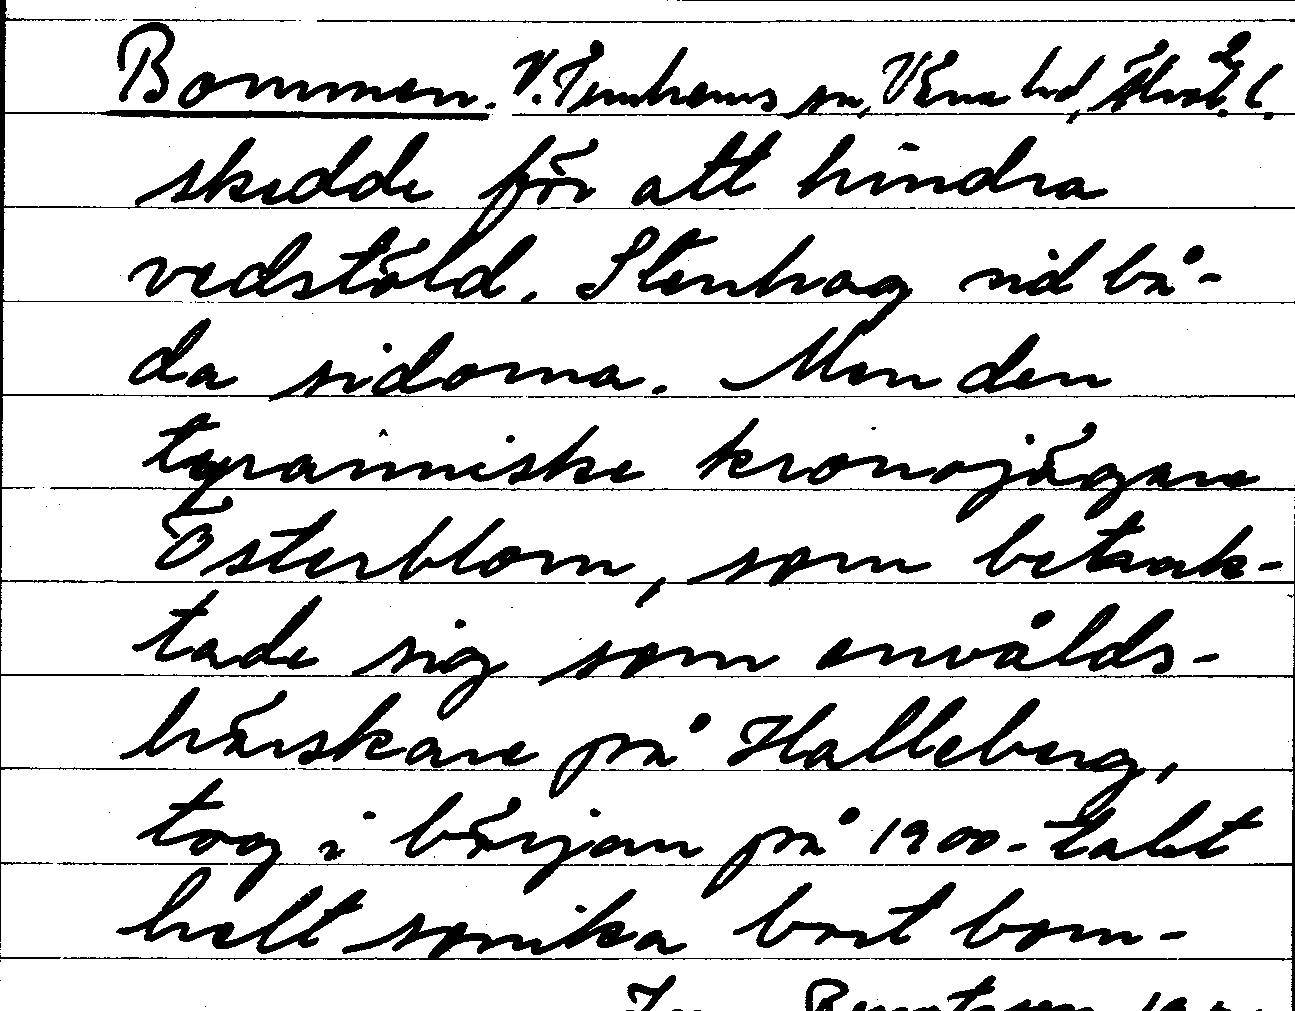 Bommen. V. Tunhems sn, Väne hd, Älvsb. l.
skedde för att hindra
vedstöld. Stenhag vid bå-
da sidorna. Men den
tyranniske kronojägare
Österblom, som betrak-
tade sig som envålds-
härskare på Halleberg,
tog i början på 1900-talet
helt sonika bort bom-